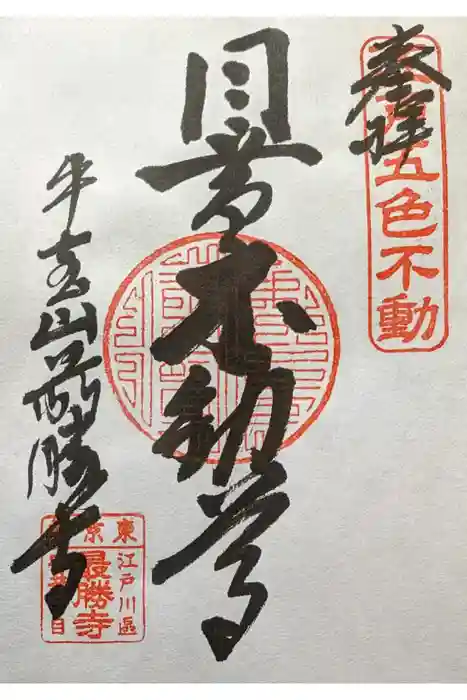 奉拝
五色不動
目黄不動尊
牛宝山最勝寺
東京
江戸川區
最勝寺